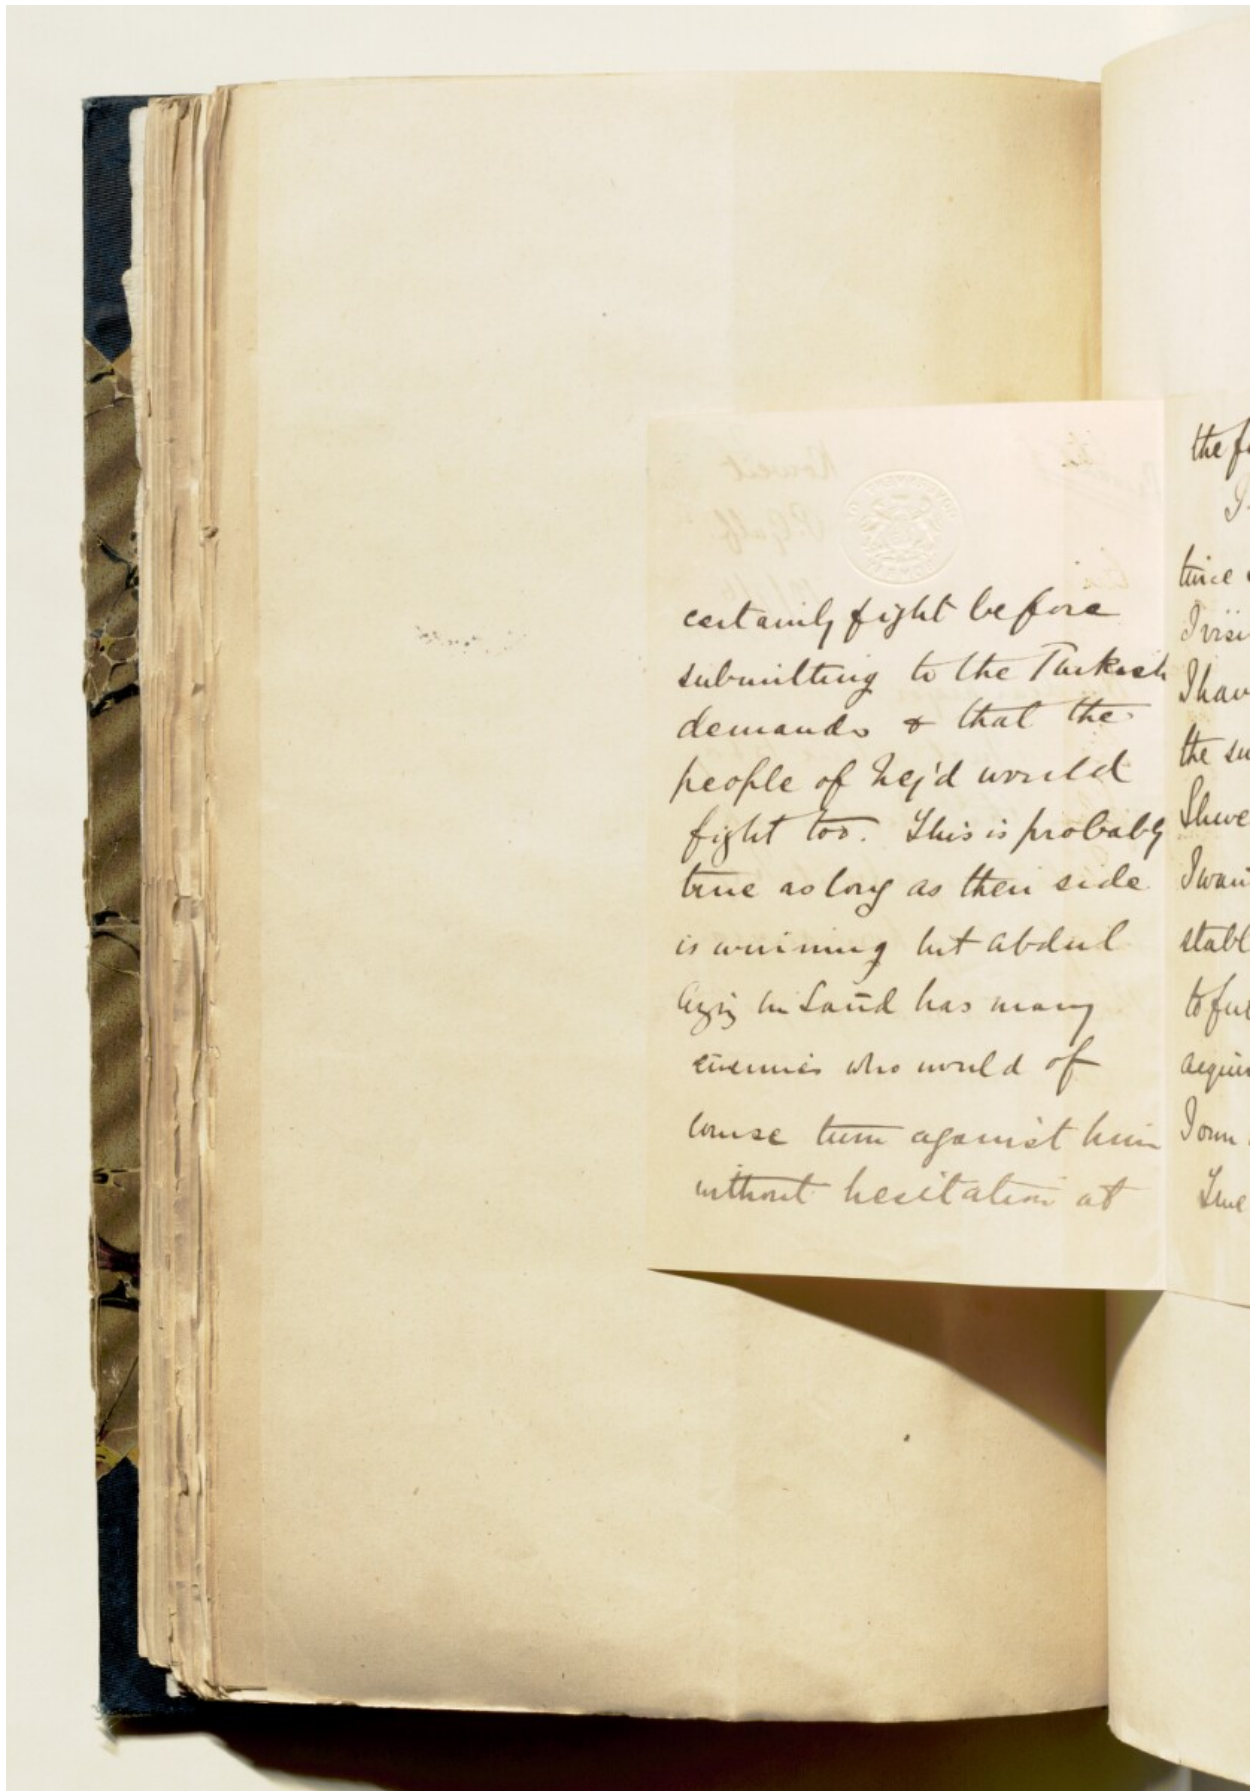 certainly fight before
submitting to the Turkish
demands & that the
people of Nej'd would
fight too. This is probably
true as long as their side
is winning but Abdul
Aziz bin Saūd has many
enemies who would of
course turn against him
without hesitation at
the
twice
I
I hav
the su
I wan
stabl
to ful
acquir
I